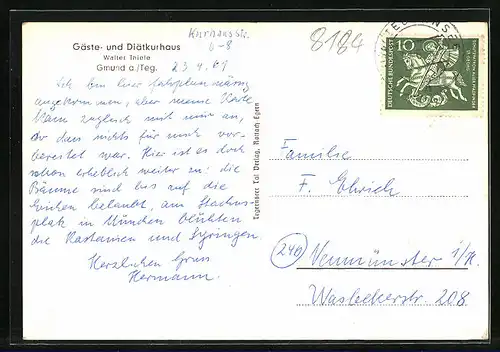 Kurhausstr.
6-8
8184
Gäste- und Diätkurhaus
Walter Thiele
Gmund a./Teg.
23.4.61
Ich bin hier fahrplanmässig
angekommen, aber meine Karte
kam zugleich mit mir an,
so dass nichts für mich vor-
bereitet war. Hier ist es doch
schon erheblich weiter so: die
Bäume sind bis auf die
Eichen belaubt, am Stachus-
platz in München blühten
die Kastanien und Syringen.
Herzlichen Gruss
Hermann.
Tegernseer Tal Verlag, Rottach Egern
10
DEUTSCHE BUNDESPOST
Familie
F. Ehrich
(24b) Neumünster i/H.
Wasbekerstr. 208